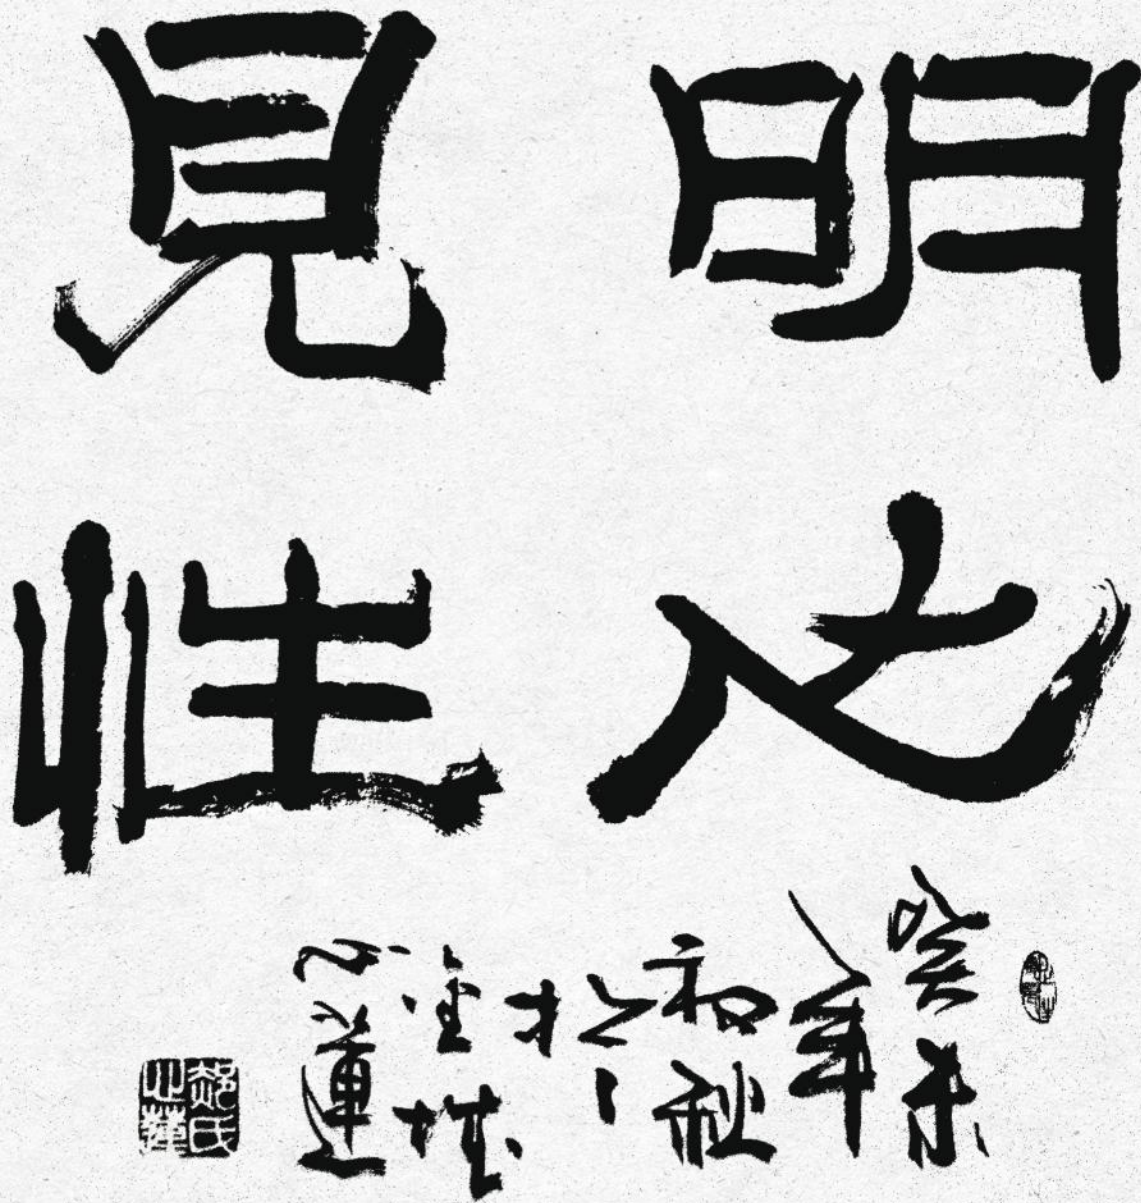 明心
見性
癸未
年
初秋
於
金城
心蓮
郝氏
心蓮